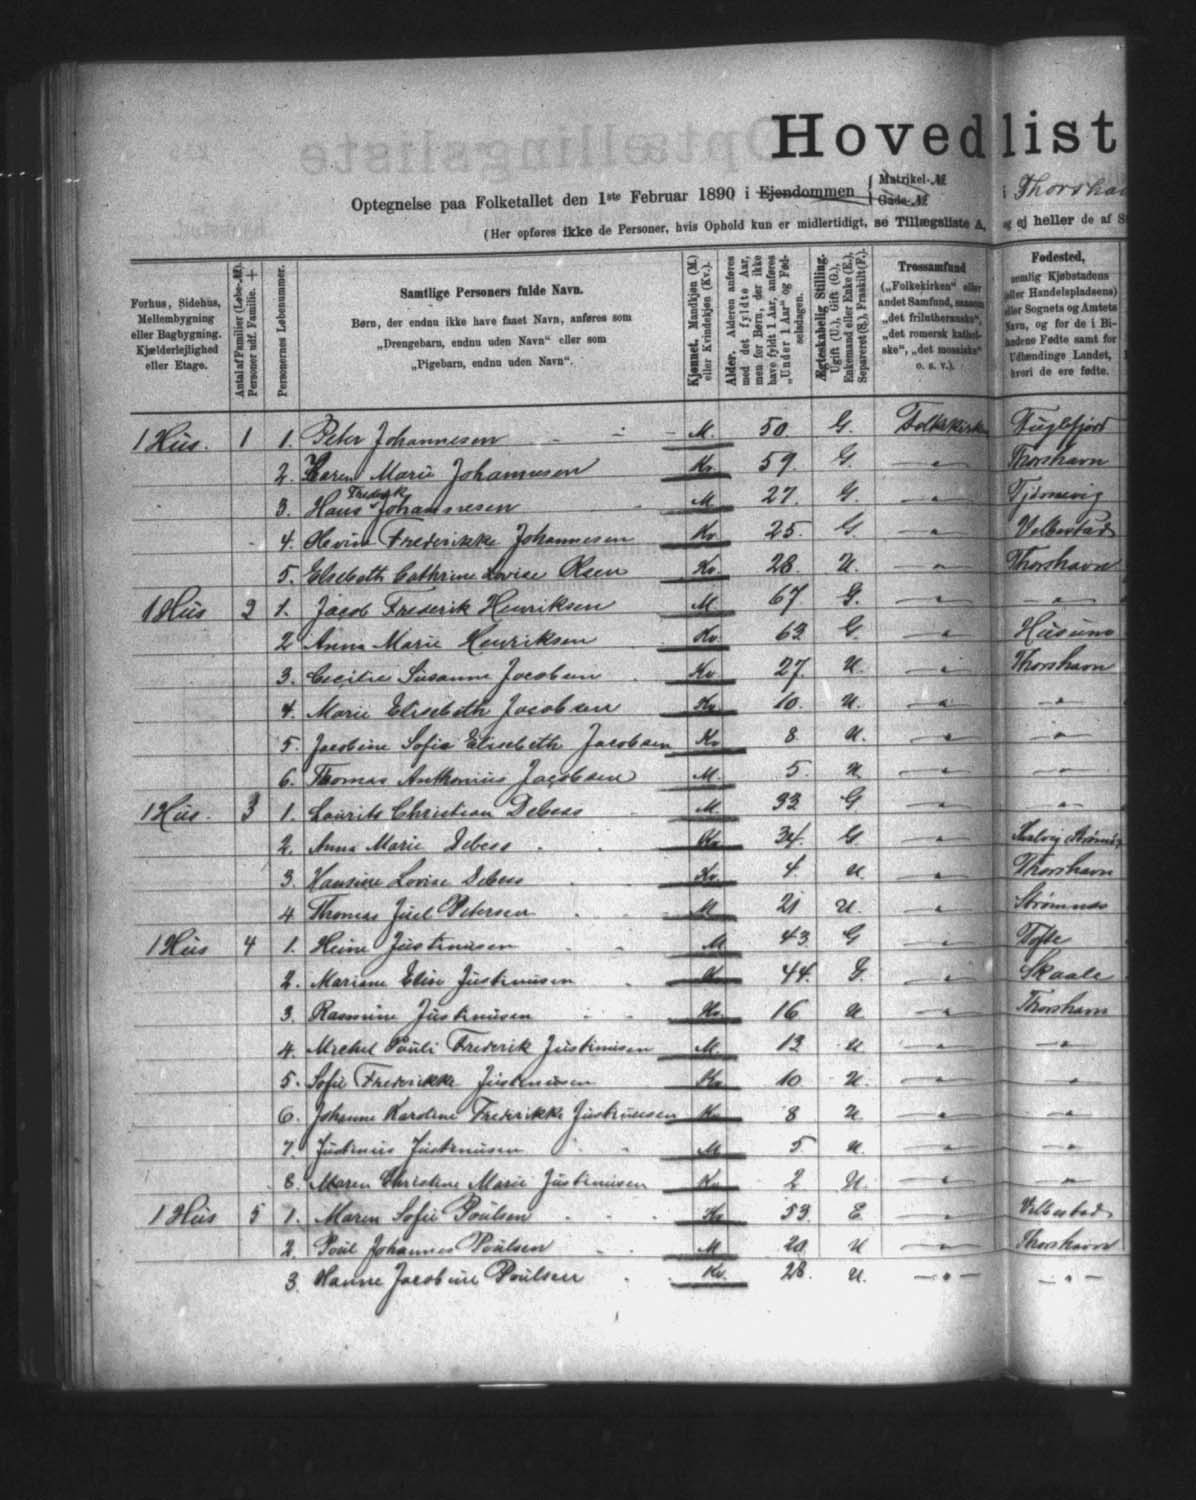 Hovedlist
Optegnelse paa Folketallet den 1ste Februar 1890 i Ejendommen { Matrikel-№ Gade-№ i Thorshav
(Her opføres ikke de Personer, hvis Ophold kun er midlertidigt, se Tillægsliste A, og ej heller de af S
Forhus, Sidehus, Mellembygning eller Bagbygning. Kjælderlejlighed eller Etage.
Antal af Familier (Løbe-№). Personer udf. Familie. +
Personernes Løbenummer.
Samtlige Personers fulde Navn.
Børn, der endnu ikke have faaet Navn, anføres som
„Drengebarn, endnu uden Navn“ eller som
„Pigebarn, endnu uden Navn“.
Kjønnet. Mandkjøn (M.) eller Kvindekjøn (Kv.).
Alder. Alderen anføres med det fyldte Aar, men for Børn, der ikke have fyldt 1 Aar, anføres „Under 1 Aar“ og Fødselsdagen.
Ægteskabelig Stilling. Ugift (U.), Gift (G.), Enkemand eller Enke (E.), Separeret (S.), Fraskilt (F.).
Trossamfund („Folkekirken“ eller andet Samfund, saasom „det frilutheranske“, „det romersk katholske“, „det mosaiske“ o. s. v.).
Fødested, nemlig Kjøbstadens eller Handelspladsens) eller Sognets og Amtets Navn, og for de i Bilandene Fødte samt for Udlændinge Landet, hvori de ere fødte.
1 Hus. 1 1. Peter Johannesen M. 50. G. Folkekirken Fuglefjord
2. Karen Marie Johannesen Kv. 59. G. " Thorshavn
3. Hans Frederik Johannesen M. 27. G. " Tjørnevig
4. Frederikke Johannesen Kv. 25. G. " Velbestad
5. Elsebeth Cathrine Lovise Olsen Kv. 28. U. " Thorshavn
1 Hus 2 1. Jacob Frederik Henriksen M. 67. G. " "
2 Anna Marie Henriksen Kv. 63. G. " Husum
3. Cecilie Susanne Jacobsen Kv. 27. U. " Thorshavn
4. Marie Elisebeth Jacobsen Kv. 10. U. " "
5. Jacobine Sofie Elisebeth Jacobsen Kv. 8 U. " "
6. Thomas Anthonius Jacobsen M. 5. U " "
1 Hus. 3 1. Laurits Christian Debess M. 33 G " "
2. Anna Marie Debess Kv. 34. G. "
3. Hansine Lovise Debess Kv. 4. U. " Thorshavn
4 Thomas Juel Petersen M 21 U. " Strømnæs
1 Hus 4 1. Heine Justinusen M 43 G " Tofte
2. Mariane Elise Justinusen Kv. 44. G. " Skaale
3. Rasmine Justinusen Kv. 16 U " Thorshavn
4. Michel Pouli Frederik Justinusen M. 13 U " "
5. Sofie Frederikke Justinusen Kv. 10 U. " "
6. Johanne Karoline Frederikke Justinusen Kv. 8 U. " "
7. Justinus Justinusen M 5 U. " "
8. Maren Christine Marie Justinusen Kv. 2 U. " "
1 Hus 5 1. Maren Sofie Poulsen Kv 53. E. " Velbestad
2. Poul Johannes Poulsen M 20 U " Thorshavn
3. Hanne Jacobine Poulsen Kv. 28. U. " "